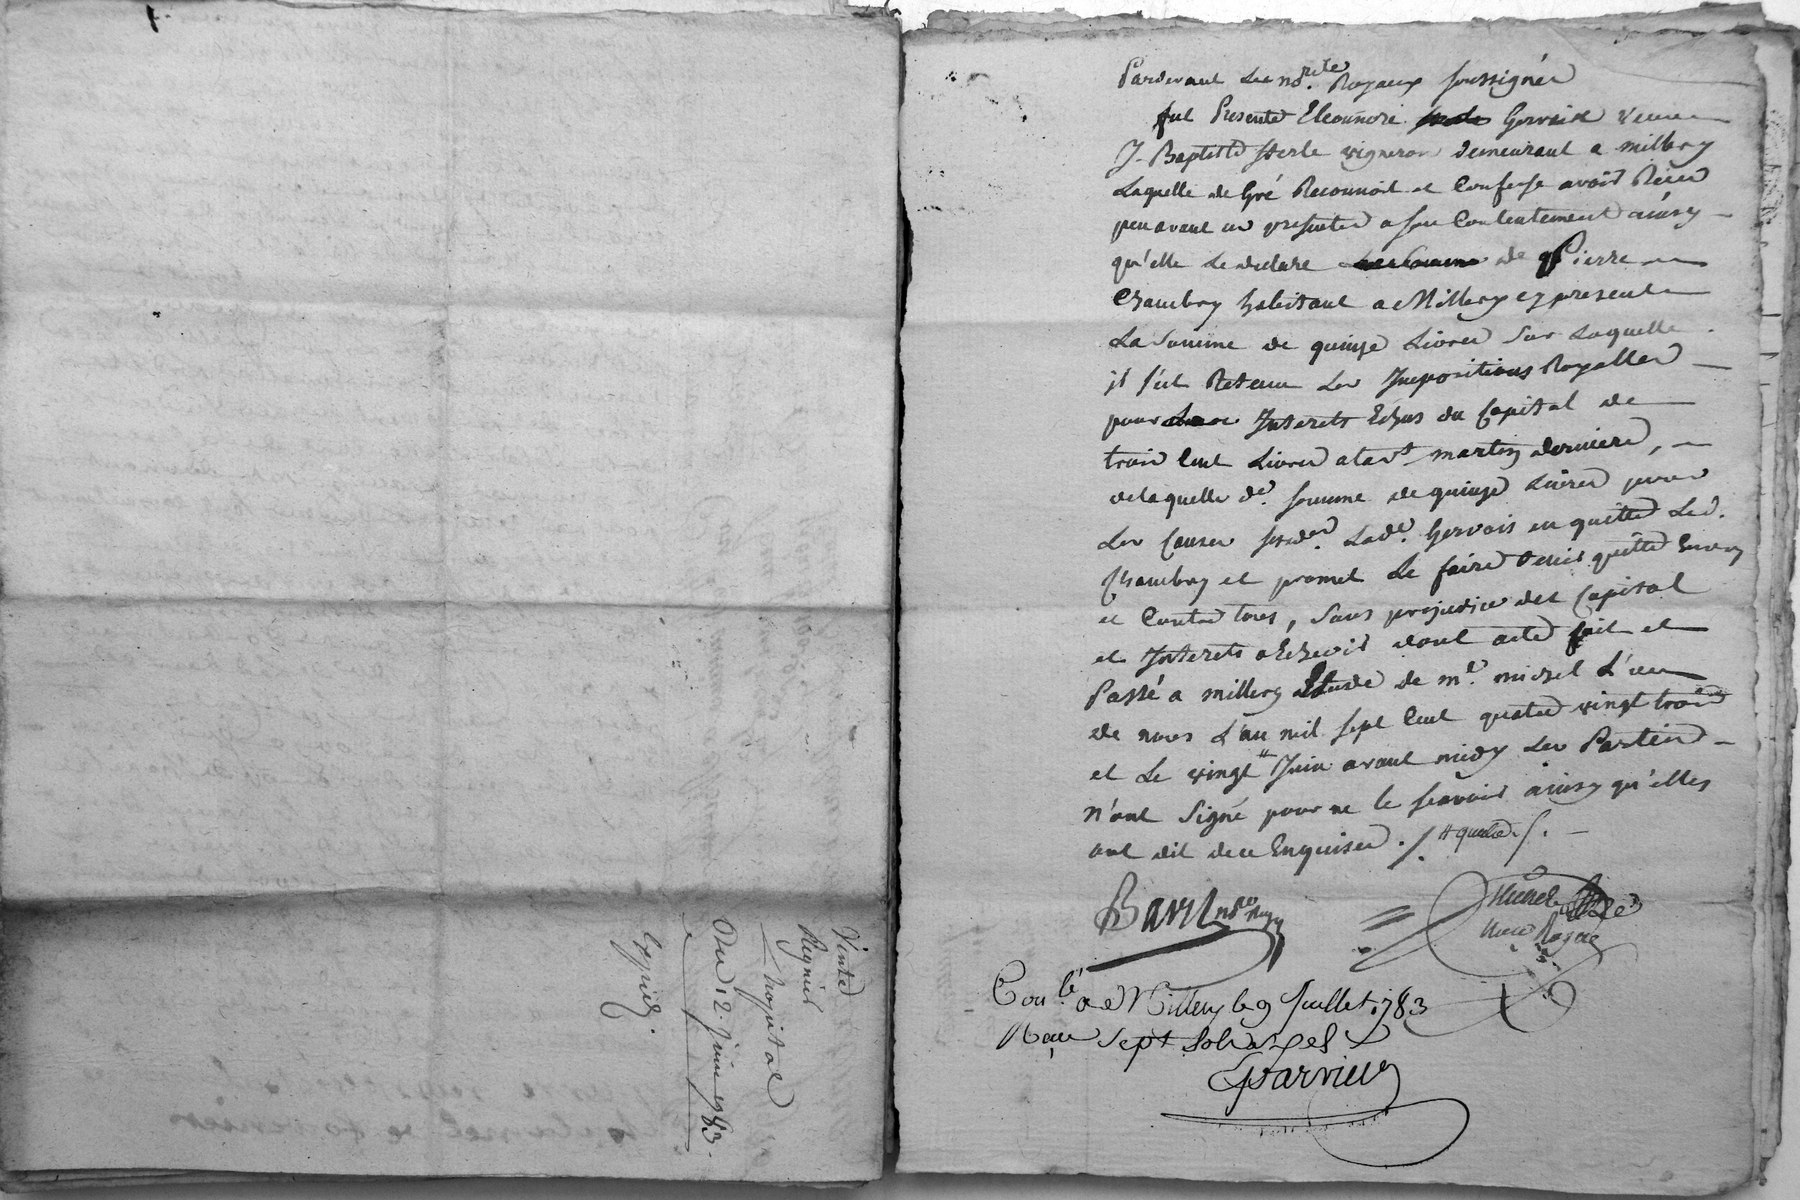 Vente
Regnie
hopital
Du 12. Juin 1783.
Expiée.
Pardevant Les no.res Royaux soussignés
fut Presente Eleonnore Gervais veuve
J. Baptiste vigneron demeurant a millery
Laquelle de Gré Reconnoit et Confesse avoir Reçu
peu avant ces presentes a son Contentement ainsy
qu'elle Le declare de Pierre
Chambry habitant a Millery cy present
La Somme de quinze Livres Sur Laquelle
il s'est Retenu Les Impositions Royalles
pour Interets Echus du Capital de
trois Cent Livres a la st martin derniere,
de laquelle de. somme de quinze Livres pour
Les Causes susd.es Lad.e Gervais en quitte Led.
Chambry et promet Le faire tenir quitte Envers
et Contre tous, Sans prejudice du Capital
et Interets a Echeoir dont acte fait et
Passé a millery Etude de m.e michel L'un
de nous L'an mil sept Cent quatre vingt trois
et Le vingt # Juin avant midy Les Parties
n'ont Signé pour ne le scavoir ainsy qu'elles
ont dit de ce Enquises ./. # quatre ./.
Michel
no.re Roy
no.re Royal
Con.lé a Millery le 9 Juillet 1783
Reçu sept sols
Eparvier